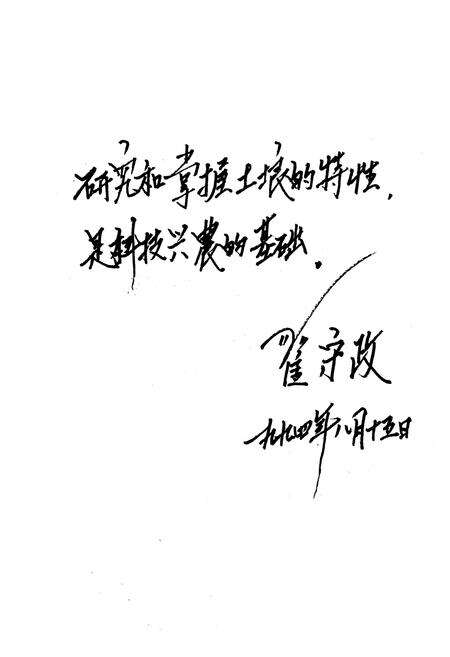 研究和掌握土壤的特性，
是科技兴農的基础。
翟守政
一九九四年八月十五日